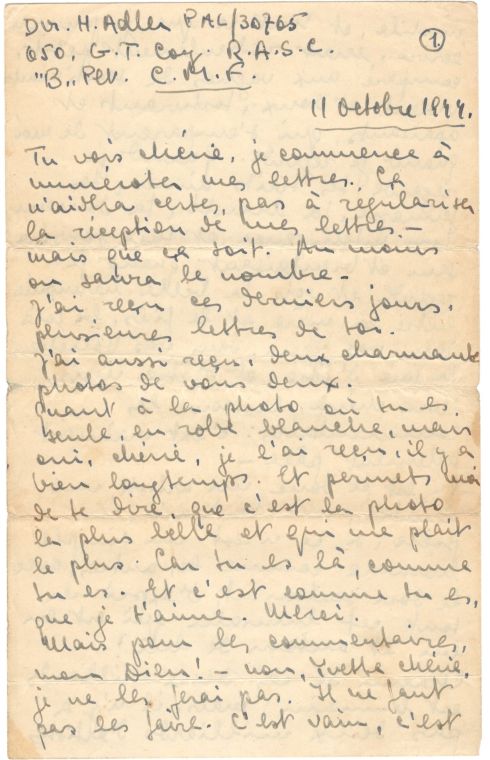 Dvr. H. Adler PAL/30765
650, G.T. Coy. R.A.S.C.
"B" Plt. C.M.F
1
11 Octobre 1944.
Tu vois chérie, je commence à
numéroter mes lettres. Ça
n'aidra certes, pas à régulariser
la réception de mes lettres -
mais que ça soit. Au moins
on saura le nombre -
J'ai reçu ces derniers jours,
plusieures lettres de toi.
J'ai aussi reçu, deux charmante
photos de vous deux.
Quant à la photo où tu es
seule, en robe blanche, mais
oui, chérie, je l'ai reçu, il y a
bien longtemps. Et permets moi
de te dire, que c'est la photo
la plus belle et qui me plait
le plus. Car tu es là, comme
tu es. Et c'est comme tu es,
que je t'aime. Merci.
Mais pour les commentaires,
mon Dieu! - non, Yvette chérie,
je ne les ferai pas. Il ne faut
pas les faire. C'est vain, c'est